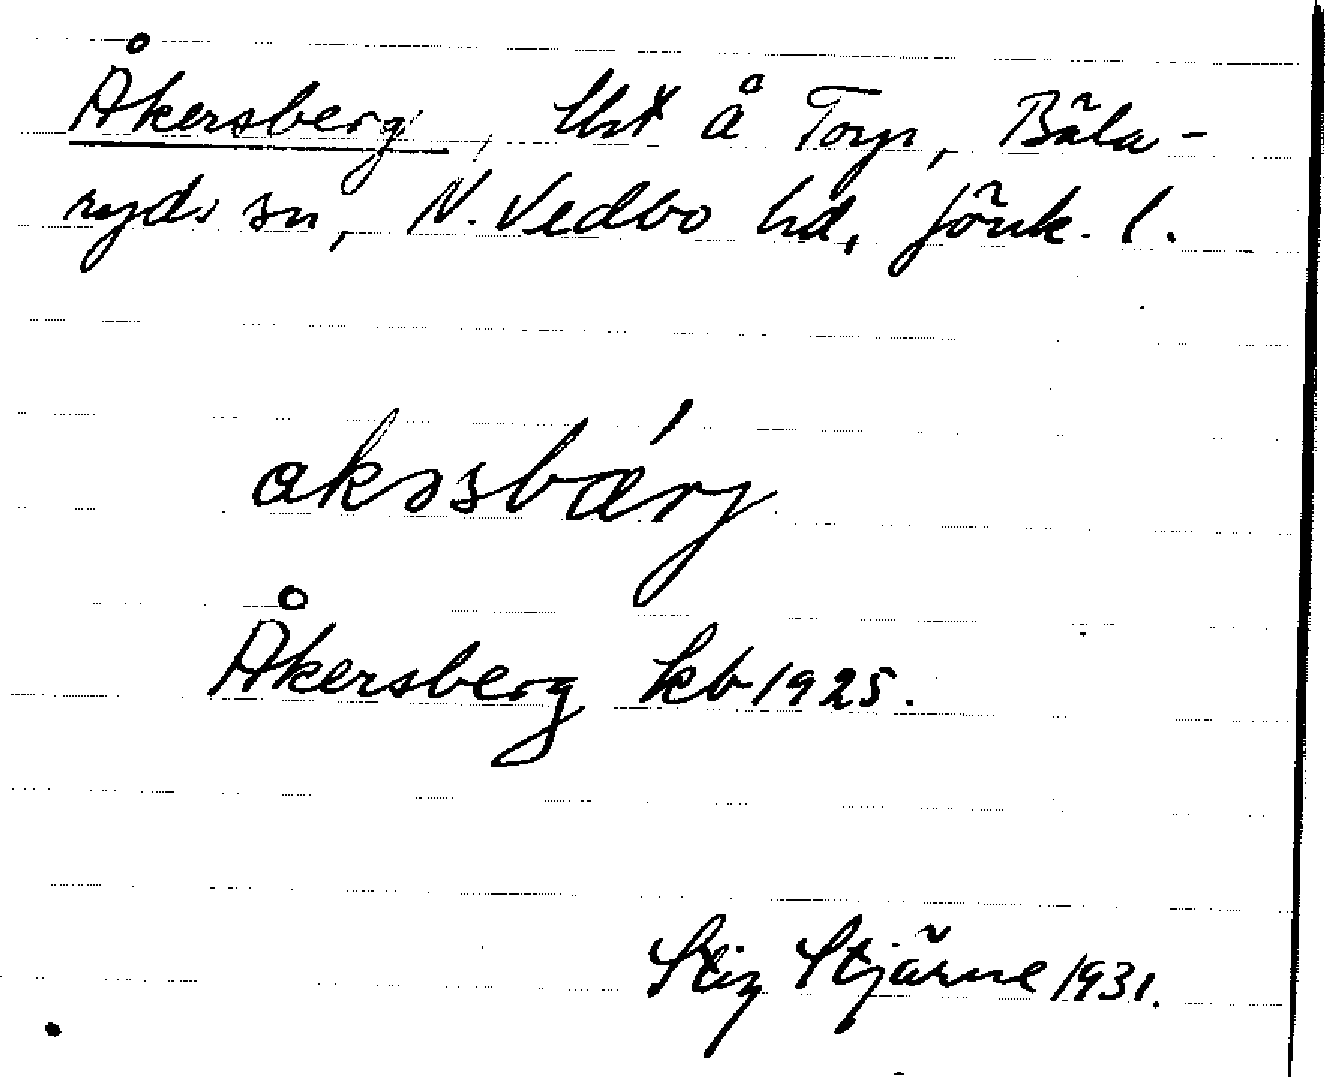 Åkersberg, lht å Torp, Bäla-
ryds sn, N. Vedbo hd, Jönk. l.
akəsbærj
Åkersberg kb 1925.
Stig Stjärne 1931.